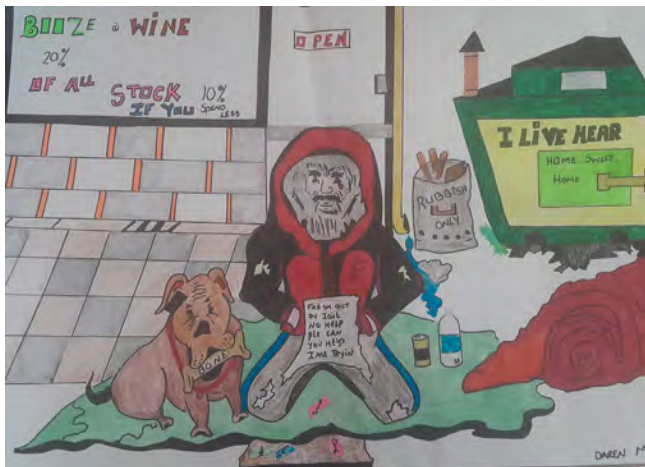 BOOZE @ WINE
20%
OF ALL
STOCK 10%
IF YOU SPEND
LESS
OPEN
I LIVE HEAR
HOME SWEET
HOME
RUBBISH
ONLY
FRESH OUT
OV JAIL
NO HELP
PLE CAN
YOU HELP
IME TRYIN
BONE
DAREN M